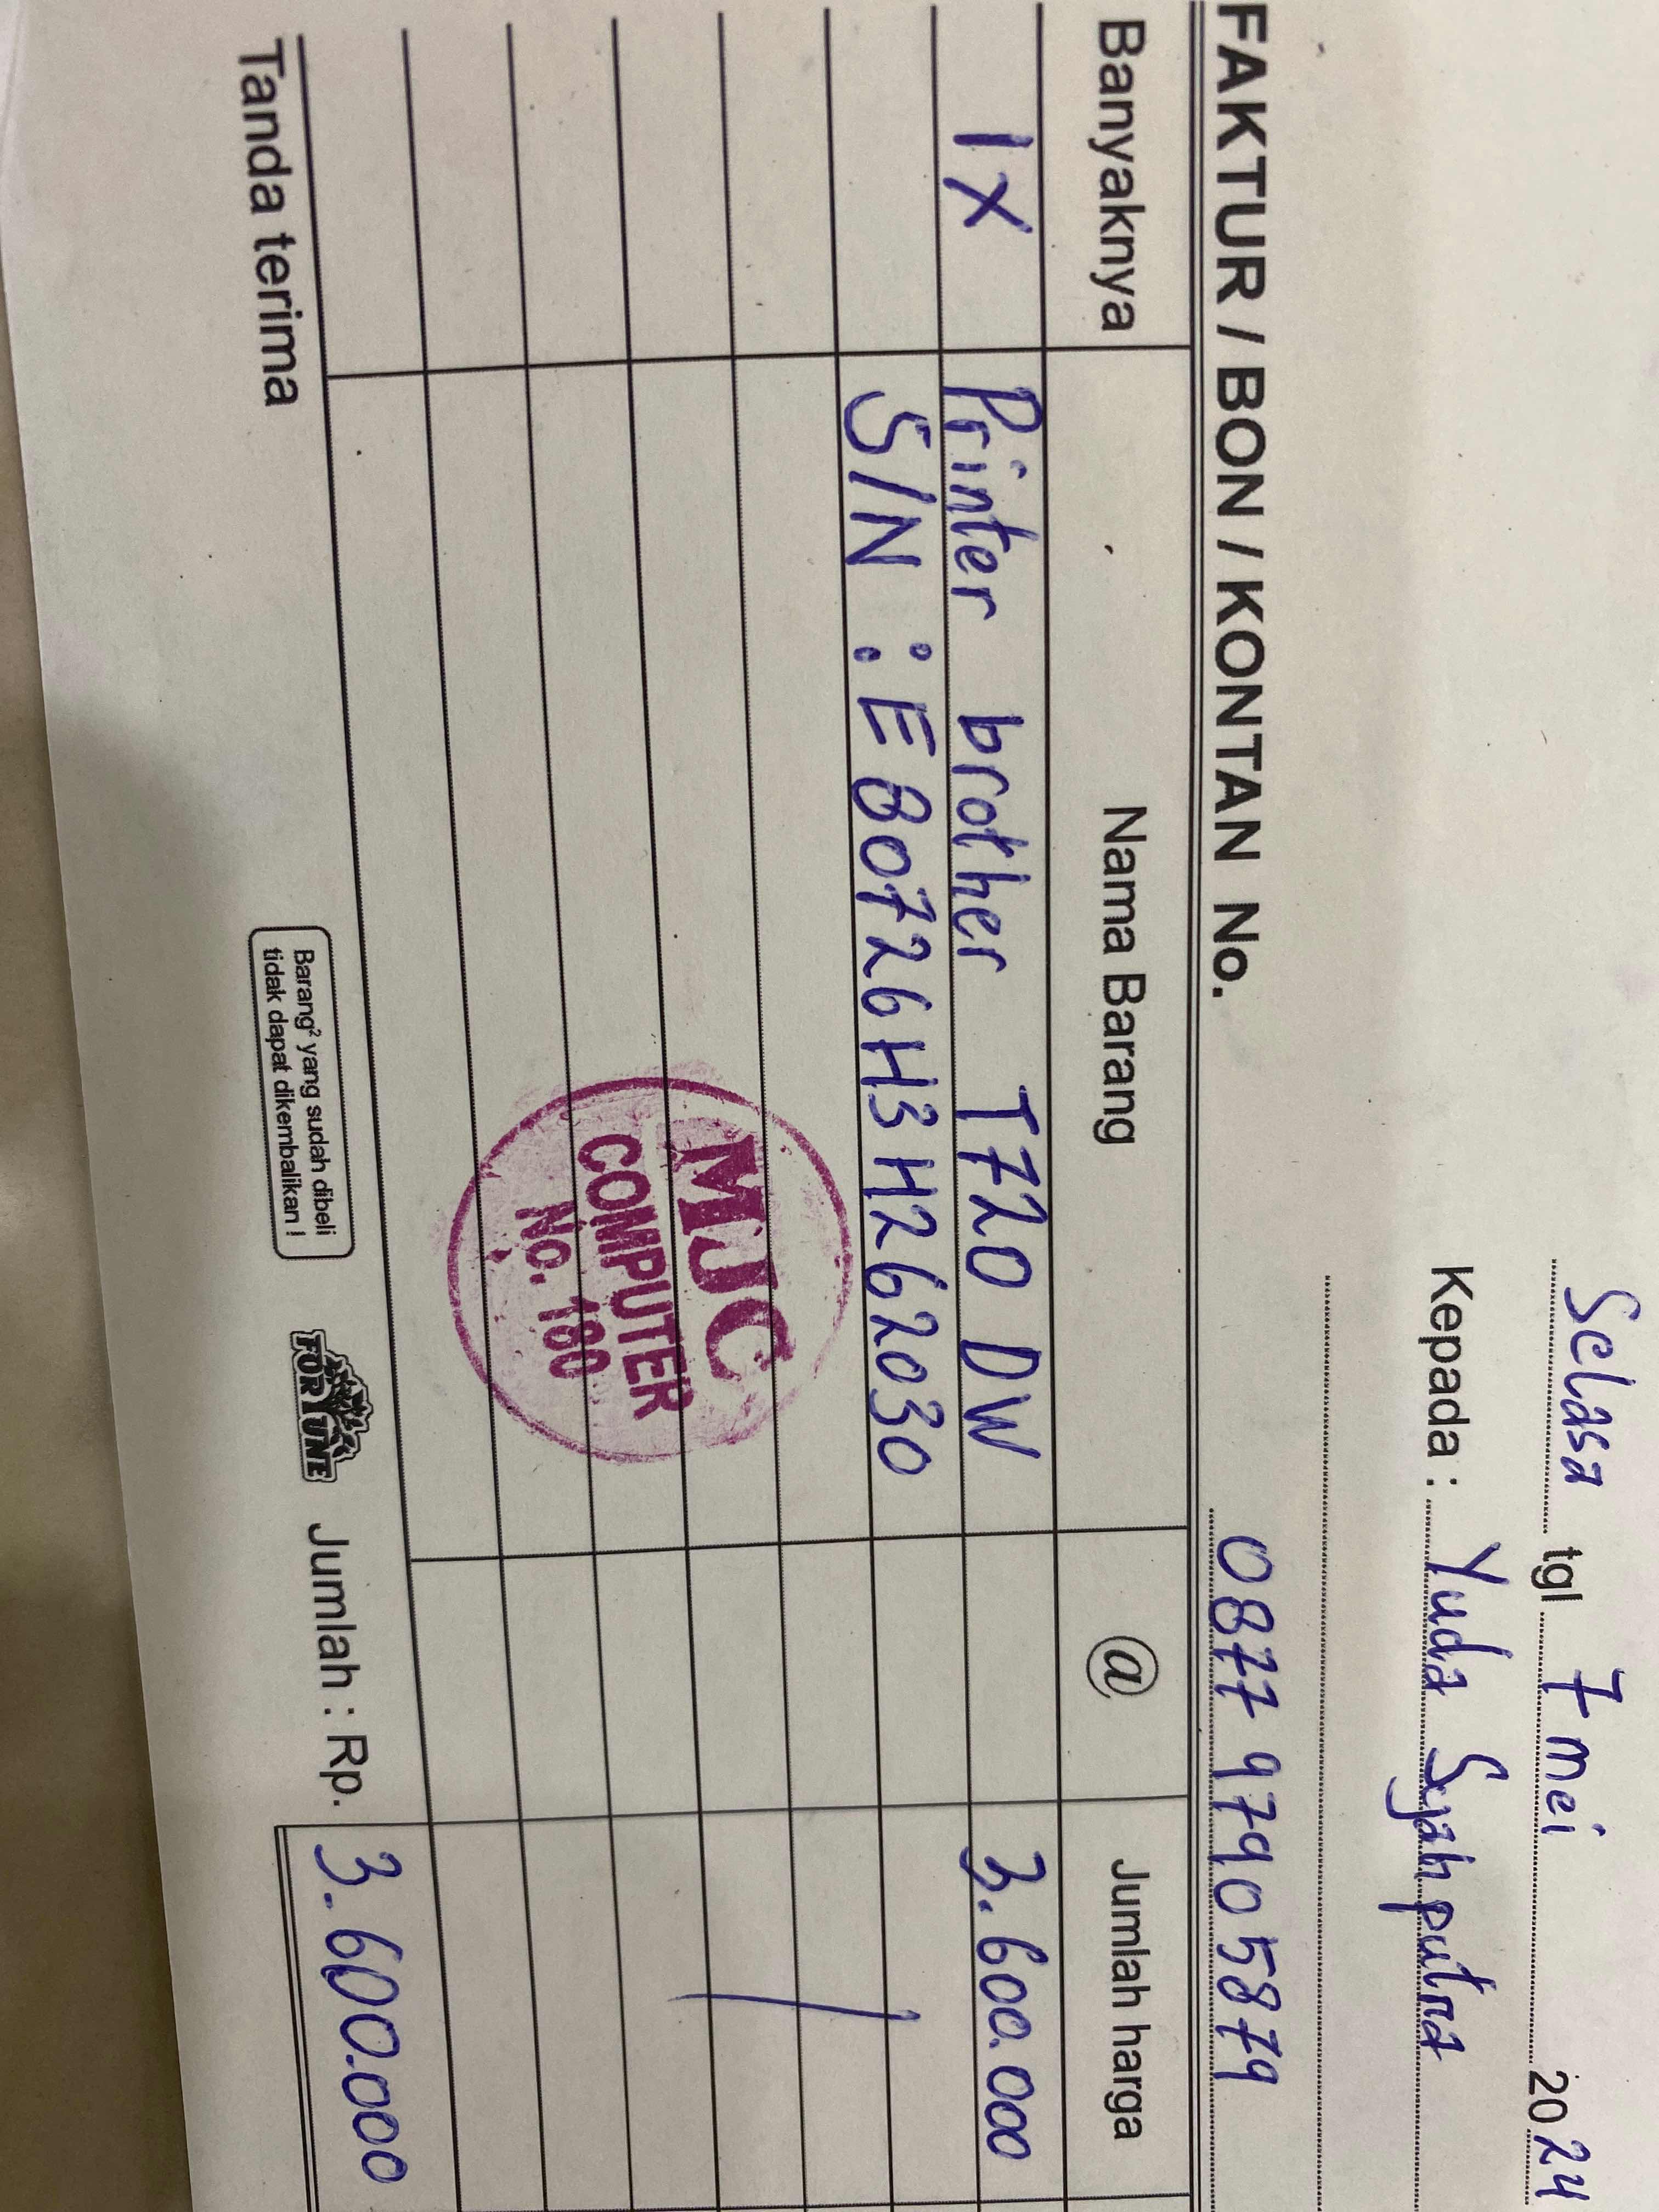 Selasa tgl 7 mei 2024
Kepada : Yuda Syahputra
0877 9790 5879
FAKTUR / BON / KONTAN No.
Banyaknya Nama Barang @ Jumlah harga
1 X Printer brother T720 DW 3.600.000
S/N : E80726H3H262030
MJC
COMPUTER
No. 180
Tanda terima
Barang² yang sudah dibeli
tidak dapat dikembalikan !
FORTUNE
Jumlah : Rp. 3.600.000